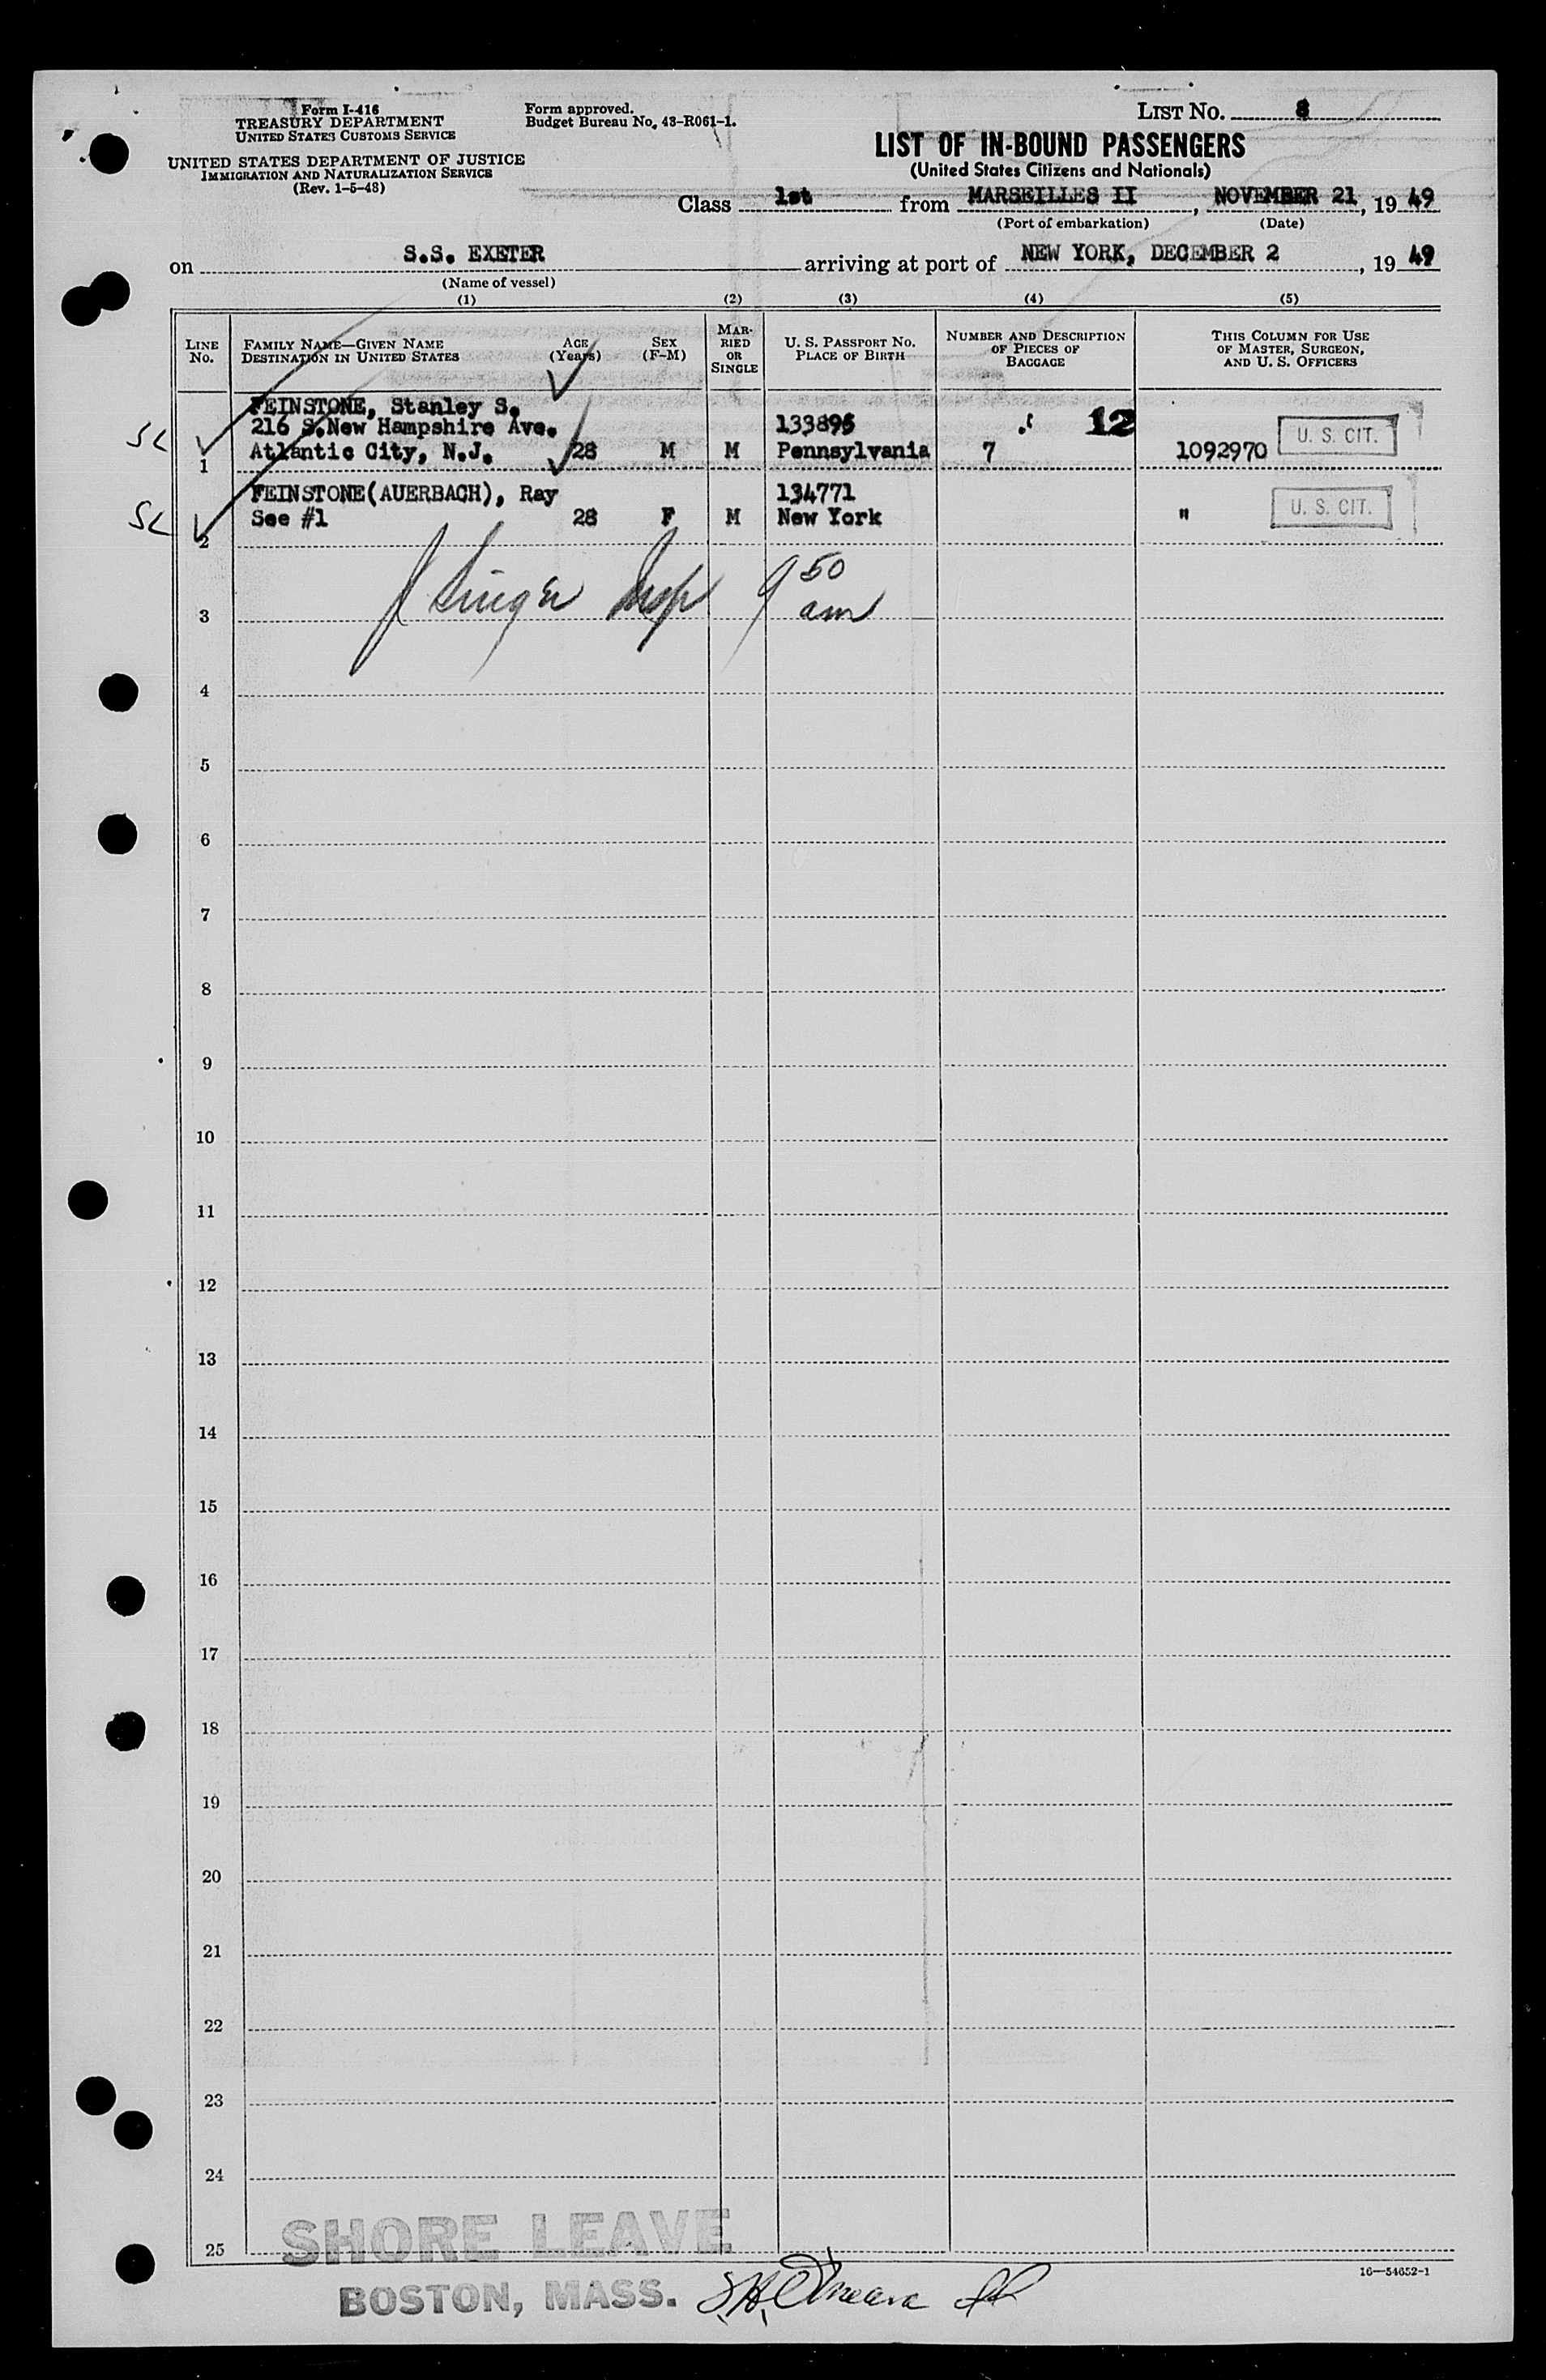 Form I-416
TREASURY DEPARTMENT
UNITED STATES CUSTOMS SERVICE
UNITED STATES DEPARTMENT OF JUSTICE
IMMIGRATION AND NATURALIZATION SERVICE
(Rev. 1-5-48)
Form approved.
Budget Bureau No. 43-R061-1.
LIST No. 8
LIST OF IN-BOUND PASSENGERS
(United States Citizens and Nationals)
Class 1st from MARSEILLES II, NOVEMBER 21, 19 49
(Port of embarkation) (Date)
on S.S. EXETER arriving at port of NEW YORK, DECEMBER 2, 19 49
(Name of vessel)
(1) (2) (3) (4) (5)
LINE No.
FAMILY NAME—GIVEN NAME
DESTINATION IN UNITED STATES
AGE (Years)
SEX (F-M)
MARRIED OR SINGLE
U. S. PASSPORT No.
PLACE OF BIRTH
NUMBER AND DESCRIPTION OF PIECES OF BAGGAGE
THIS COLUMN FOR USE OF MASTER, SURGEON, AND U. S. OFFICERS
FEINSTONE, Stanley S.
216 S. New Hampshire Ave. 133895 12 U. S. CIT.
SL 1 Atlantic City, N.J. 28 M M Pennsylvania 7 1092970
FEINSTONE(AUERBACH), Ray 134771 U. S. CIT.
SL 2 See #1 28 F M New York "
J Singer Insp 9 50 am
3
4
5
6
7
8
9
10
11
12
13
14
15
16
17
18
19
20
21
22
23
24
25
SHORE LEAVE
16—54652-1
BOSTON, MASS.